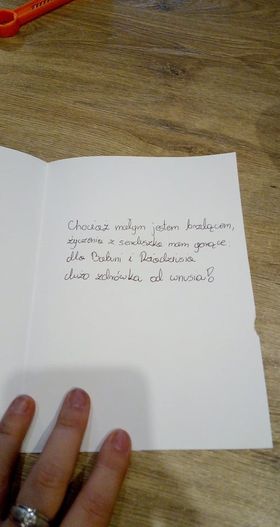 Chociaż małym jestem brzdącem,
życzenia z serduszka mam gorące:
dla Babuni i Dziadziusia
dużo zdrówka od wnusia!